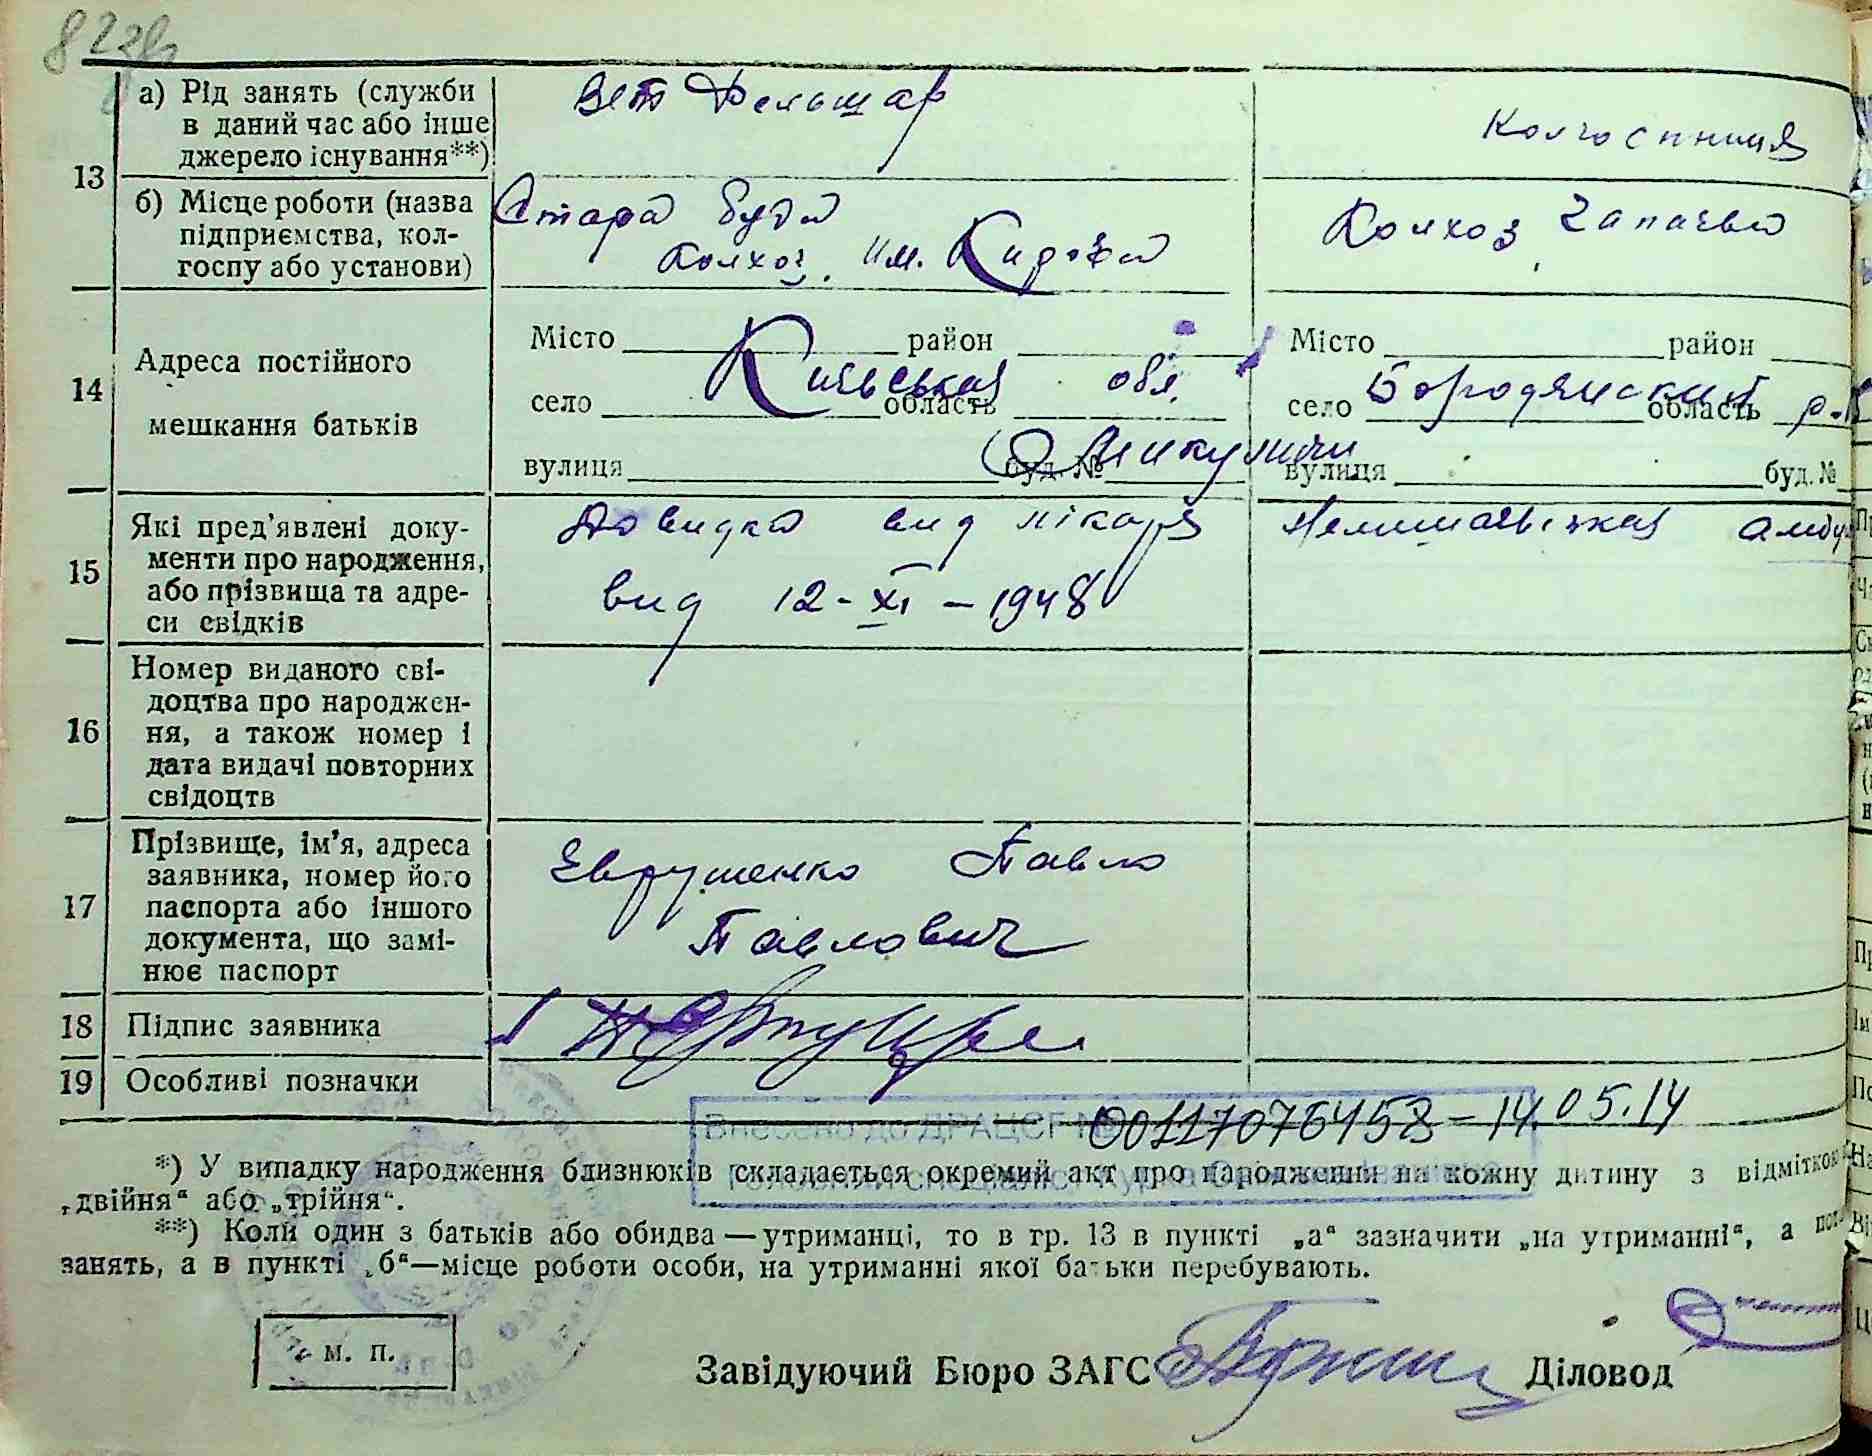 82зв
13
а) Рід занять (служби
в даний час або інше
джерело існування**)
Вет Фельшар
Колгоспниця
б) Місце роботи (назва
підприємства, кол-
госпу або установи)
Стара Буда
Колхоз. Им. Кирова
Колхоз Чапаева
14
Адреса постійного
мешкання батьків
Місто район
село область
вулиця буд. №
Київська обл.
с Микуличи
Місто район
село область
вулиця буд. №
Бородянский р-н
15
Які пред'явлені доку-
менти про народження,
або прізвища та адре-
си свідків
Довидка вид лікаря
вид 12-XI-1948
амбу
16
Номер виданого сві-
доцтва про народжен-
ня, а також номер і
дата видачі повторних
свідоцтв
17
Прізвище, ім'я, адреса
заявника, номер його
паспорта або іншого
документа, що замі-
нює паспорт
Павло
Павлович
18
Підпис заявника
19
Особливі позначки
Внесено до ДРАЦСГ №
00117076458-14.05.14
*) У випадку народження близнюків складається окремий акт про народження на кожну дитину з відміткою
„двійня“ або „трійня“.
**) Коли один з батьків або обидва — утриманці, то в гр. 13 в пункті „а“ зазначити „на утриманні“, а
занять, а в пункті „б“—місце роботи особи, на утриманні якої батьки перебувають.
м. п.
Завідуючий Бюро ЗАГС
Діловод